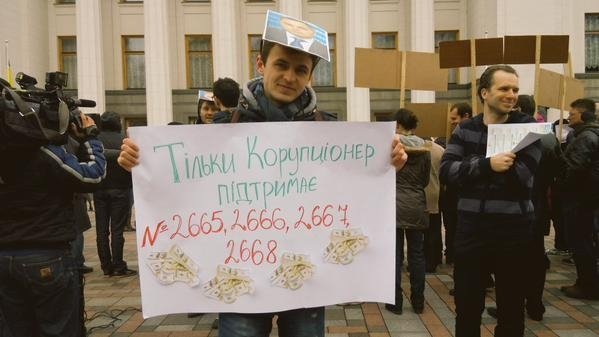 Тільки Корупціонер
підтримає
№ 2665, 2666, 2667,
2668